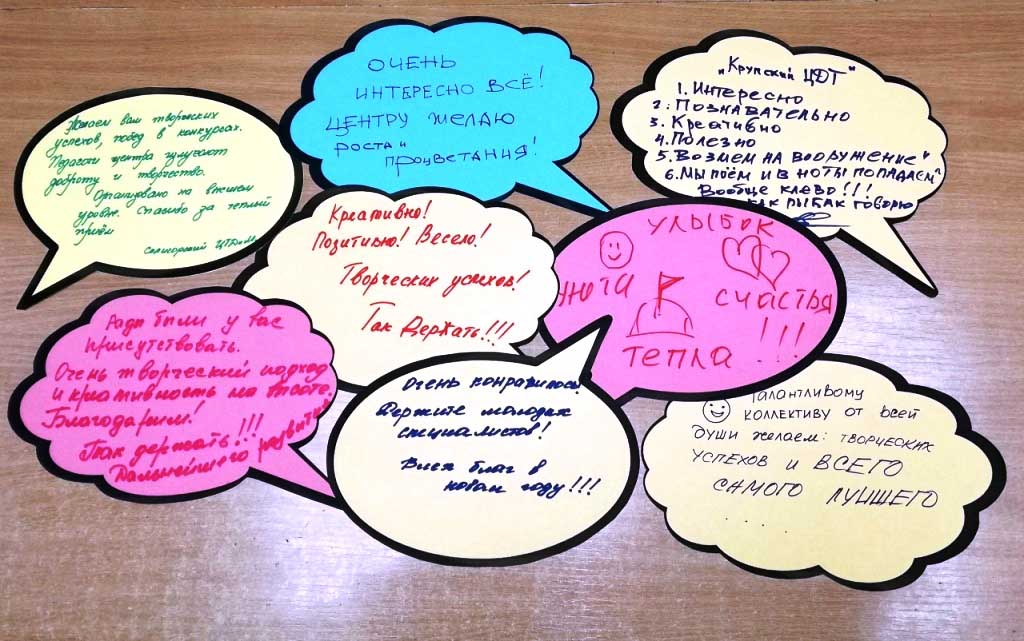 Желаем вам творческих
успехов, побед в конкурсах.
Педагоги центра излучают
доброту и творчество.
Организовано на высшем
уровне. Спасибо за теплый
приём
Солигорский
ОЧЕНЬ
ИНТЕРЕСНО ВСЁ!
ЦЕНТРУ ЖЕЛАЮ
РОСТА И ПРОЦВЕТАНИЯ!
"Крупский ЦДТ"
1. Интересно
2. Познавательно
3. Креативно
4. Полезно
5. Возмем на вооружение"
6. Мы поём и в ноты попадаем"
Вообще клево!!!
как рыбак говорю
Креативно!
Позитивно! Весело!
Творческих успехов!
Так Держать!!!
УЛЫБОК
СЧАСТЬЯ
!!!
ТЕПЛА
Рады были у вас
присутствовать.
Очень творческий подход
и креативность на высоте.
Благодарим!
Так держать!!!
Дальнейшего
Очень понравилось!
Держите молодых
специалистов!
Всех благ в
новом году!!!
Талантливому
коллективу от всей
души желаем: творческих
успехов и ВСЕГО
САМОГО ЛУЧШЕГО